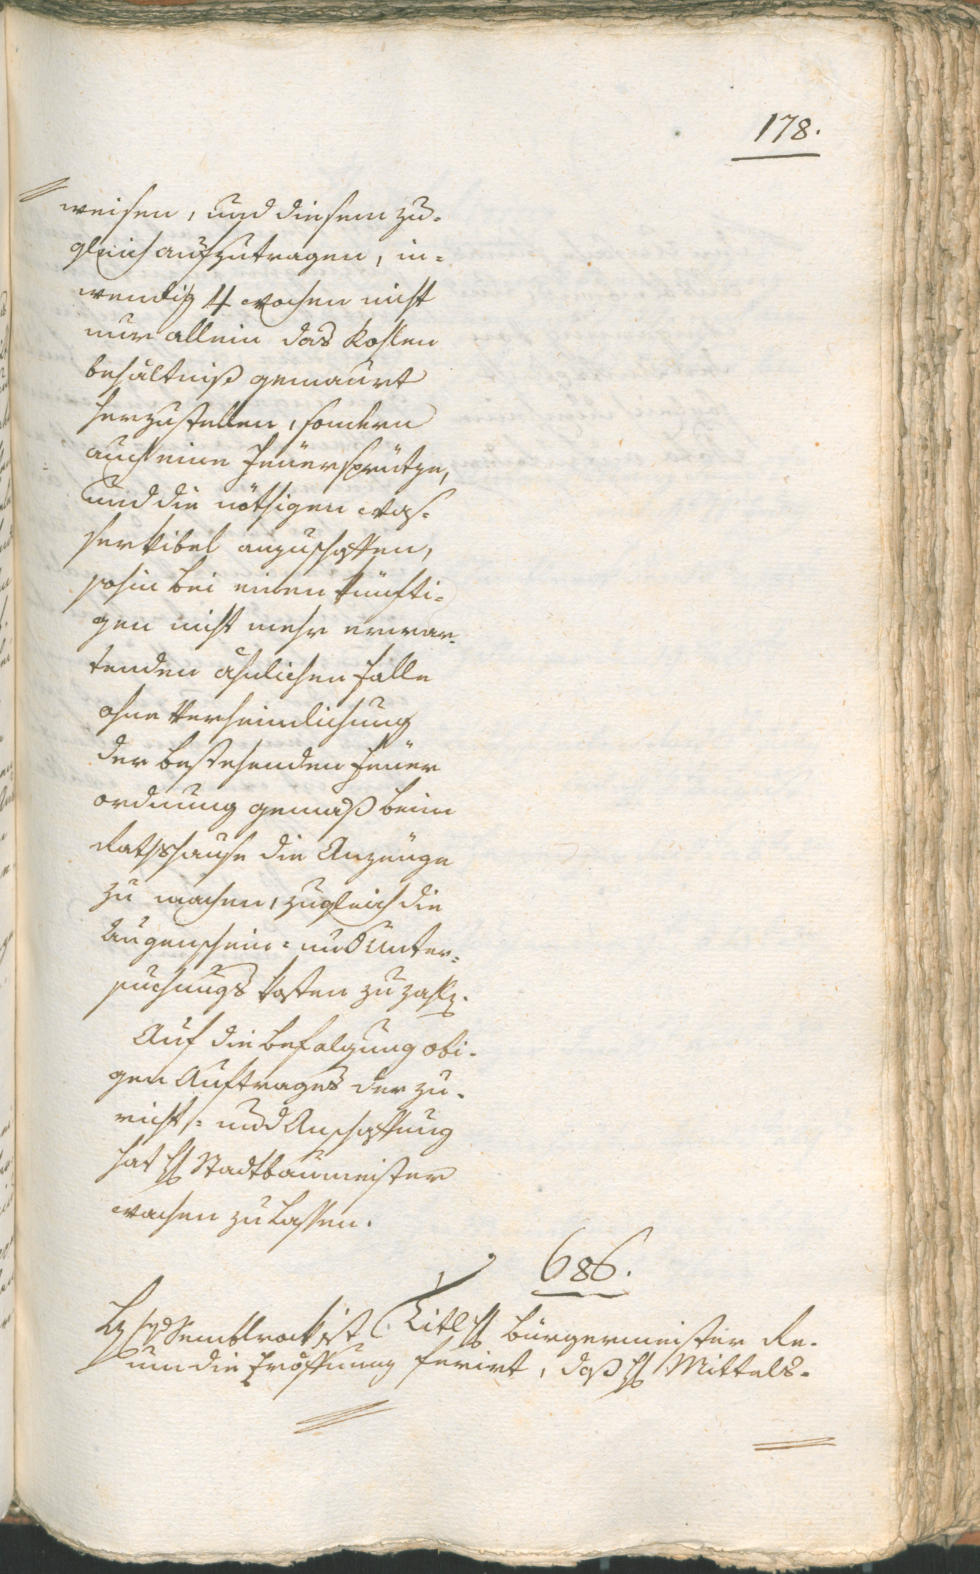 178.
weisen, und diesem zu-
gleich aufzutragen, in-
wendig 4 wochen nicht
nur allein das Kohlen
behältniß gemauert
herzustellen, sondern
auch eine Feuersprütze,
und die nöthigen Was-
serkibel anzuschaffen,
sohin bei einen künfti-
gen nicht mehr erwar-
tenden ähnlichen Falle
ohne Verheimlichung
der bestehenden Feuer
ordnung gemäß beim
Rathshause die Anzeuge
zu machen, zugleich die
Augenschein- und Unter-
suchungs kosten zu zahlen.
Auf die Befolgung obi-
gen Auftrages der zu-
richt- und Anschaffung
hat H Stadtbaumeister
wachen zu lassen.
686.
Semblrock ist Titl H Bürgermeister Re-
um die Eröffnung ferirt, daß H Mittels-